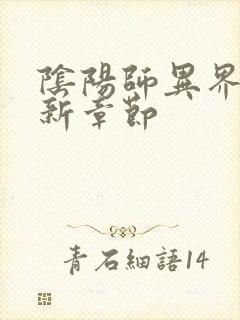 陰陽師異界
新章節
青石細語14